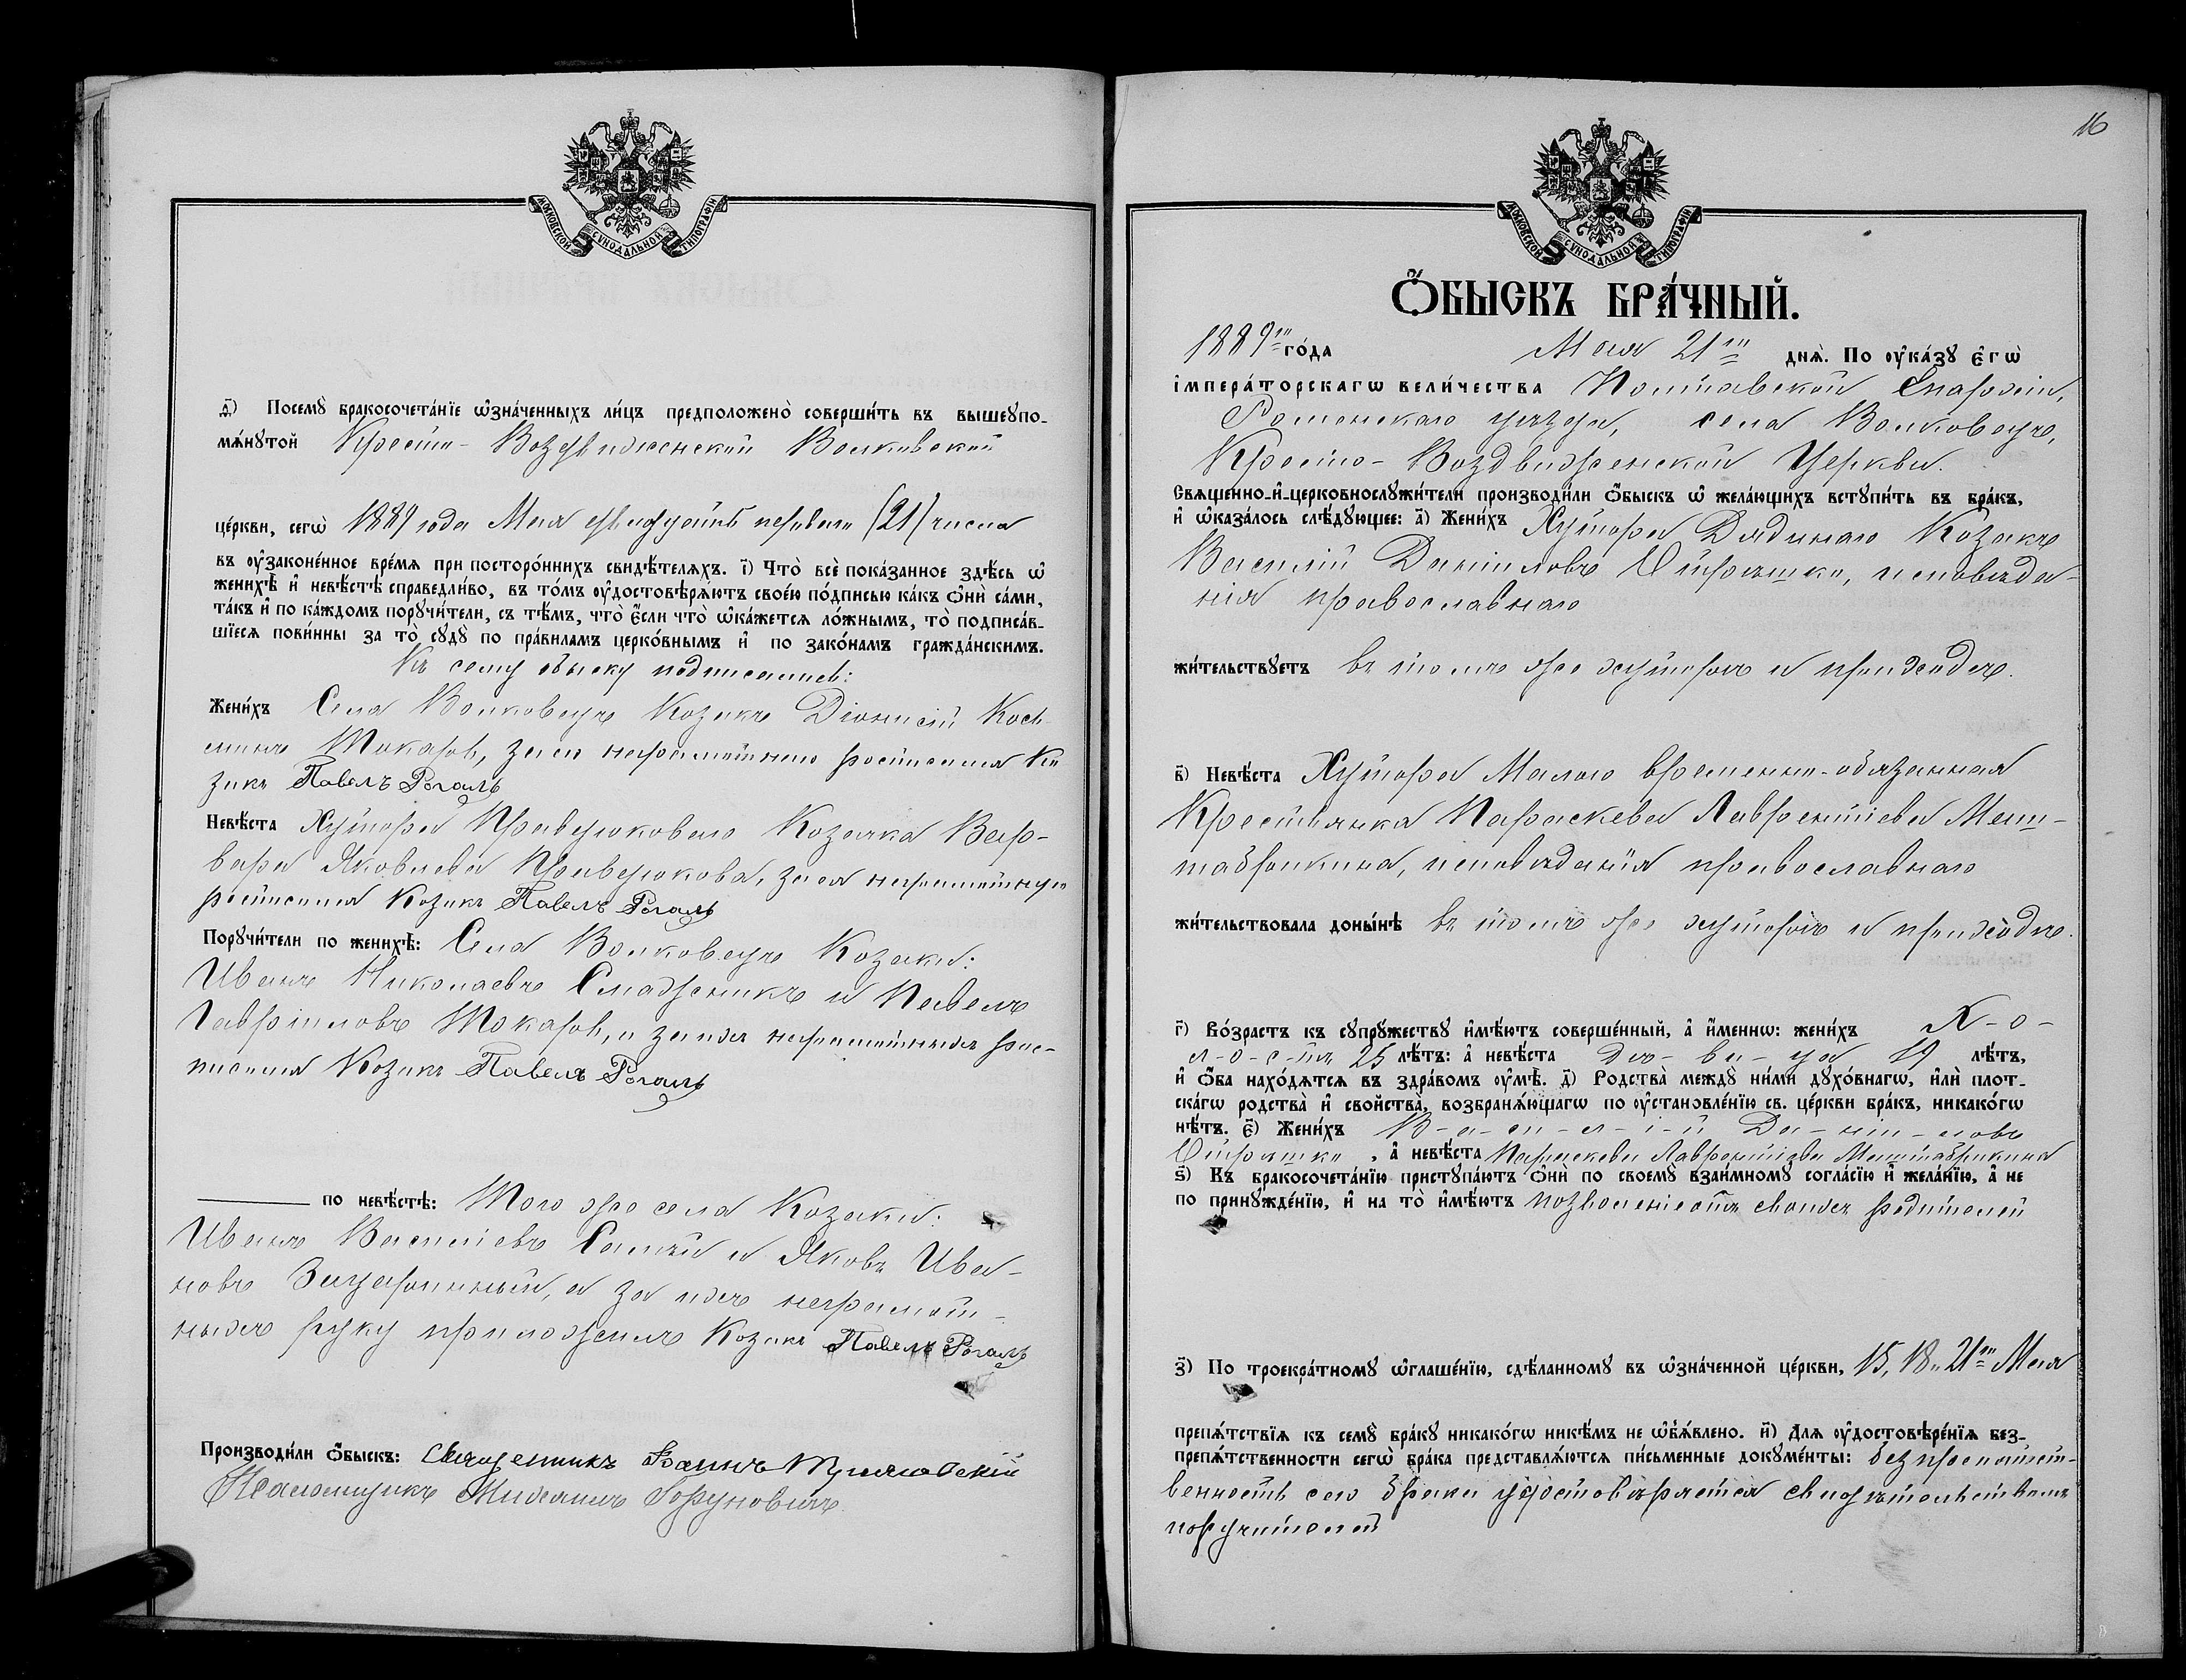 МОСКОВСКОЙ СѴНОДАЛЬНОЙ ТИПОГРАФІИ
ѳ҃) Посемꙋ̀ бракосочета́нїе ѡ҆зна́ченныхъ ли́цъ предположено̀ соверши́ть въ вышеꙋпо-
мѧ́нꙋтой Кресто-Воздвиженской Волковской
це́ркви, сегѡ̀ 1889 года Мая двадцать перваго (21) числа
въ ᲂу҆законе́нное вре́мѧ при посторо́ннихъ свидѣ́телѧхъ. і҃) Что̀ всѐ пока́занное здѣ́сь ѡ҆
женихѣ̀ и҆ невѣ́стѣ справедли́во, въ то́мъ ᲂу҆достовѣрѧ́ютъ свое́ю по́дписью ка́къ ѻ҆нѝ са́ми,
та́къ и҆ по ка́ждомъ порꙋчи́тели, съ тѣ́мъ, что̀ є҆́сли что̀ ѡ҆ка́жетсѧ ло́жнымъ, то̀ подписа́в-
шїесѧ пови́нны за то̀ сꙋдꙋ̀ по пра́виламъ церко́внымъ и҆ по зако́намъ гражда́нскимъ.
Къ сему обыску подписались:
Жени́хъ Села Волковецъ Козакъ Діонисій Кось-
минъ Токарь, за его неграмотного росписался Ко
закъ Павелъ Рогаль
Невѣ́ста Хутора Правдюкового Козачка Вар-
вара Яковлева Правдюкова, за ея неграмотную
росписался Козакъ Павелъ Рогаль
Порꙋчи́тели по женихѣ̀: Села Волковецъ Козаки:
Иванъ Николаевъ Смаженикъ и Павелъ
Гавріиловъ Токарь, а за ихъ неграмотныхъ рос-
писался Козакъ Павелъ Рогаль
по невѣ́стѣ: Того же села Козаки:
Иванъ Василіевъ Самій и Яковъ Ива-
новъ Зацаринный, а за ихъ неграмот-
ныхъ руку приложилъ Козакъ Павелъ Рогаль
Производи́ли ѻ҆́быскъ: Священникъ Іоаннъ
Псаломщикъ Михаилъ Горуновичъ
16
МОСКОВСКОЙ СѴНОДАЛЬНОЙ ТИПОГРАФІИ
Ѻ҆́БЫСКЪ БРА́ЧНЫЙ.
1889го го́да Мая 21го днѧ̀. По ᲂу҆ка́зꙋ є҆гѡ̀
і҆мпера́торскагѡ вели́чества Полтавской Епархіи,
Роменскаго уѣзда, села Волковецъ,
Кресто-Воздвиженской Церкви.
Свѧщенно-и҆-церковнослꙋжи́тели производи́ли ѻ҆́быскъ ѡ҆ жела́ющихъ встꙋпи́ть въ бра́къ,
и҆ ѡ҆каза́лось слѣ́дꙋющее: а҃) Жени́хъ Хутора Дядинаго Козакъ
Василій Даніиловъ Отряшко, исповѣда-
нія православнаго
жи́тельствꙋетъ въ томъ же хуторѣ и приходѣ.
в҃) Невѣ́ста Хутора Малого временно-обязанная
Крестьянка Параскева Лаврентіева Меш-
табрикина, исповѣданія православнаго
жи́тельствовала доны́нѣ въ томъ же хуторѣ и приходѣ.
г҃) Во́зрастъ къ сꙋпрꙋ́жествꙋ и҆мѣ́ютъ соверше́нный, а҆ и҆́меннѡ: жени́хъ Х-о-
л-о-с-тъ 25 лѣ́тъ: а҆ невѣ́ста дѣ-ви-ца 19 лѣ́тъ,
и҆ ѻ҆́ба нахо́дѧтсѧ въ здра́вомъ ᲂу҆мѣ̀. д҃) Родства̀ междꙋ̀ ни́ми дꙋхо́внагѡ, и҆лѝ плот-
ска́гѡ родства̀ и҆ сво́йства̀, возбранѧ́ющагѡ по ᲂу҆становле́нїю св. це́ркви бра́къ, никако́гѡ
нѣ́тъ. є҃) Жени́хъ В-а-си-л-і-й Да-ніи-ловъ
Отряшко, а҆ невѣ́ста Параскева Лаврентіева Мештабрикина
ѕ҃) Къ бракосочета́нїю пристꙋпа́ютъ ѻ҆нѝ по своемꙋ̀ взаи́мномꙋ согла́сїю и҆ жела́нїю, а҆ не
по принꙋжде́нїю, и҆ на то̀ и҆мѣ́ютъ позволеніе отъ своихъ родителей
з҃) По троекра́тномꙋ ѡ҆глаше́нїю, сдѣ́ланномꙋ въ ѡ҆зна́ченной це́ркви, 15, 18 и 21го Мая
препѧ́тствїѧ къ семꙋ̀ бра́кꙋ никако́гѡ никѣ́мъ не ѡ҆б̾ѧ́влено. и҃) Для ᲂу҆достовѣре́нїѧ без-
препѧ́тственности сегѡ̀ бра́ка представлѧ́ютсѧ пи́сьменные докꙋме́нты: безпрепятст-
венность сего брака удостовѣряется свидѣтельствомъ
поручителей